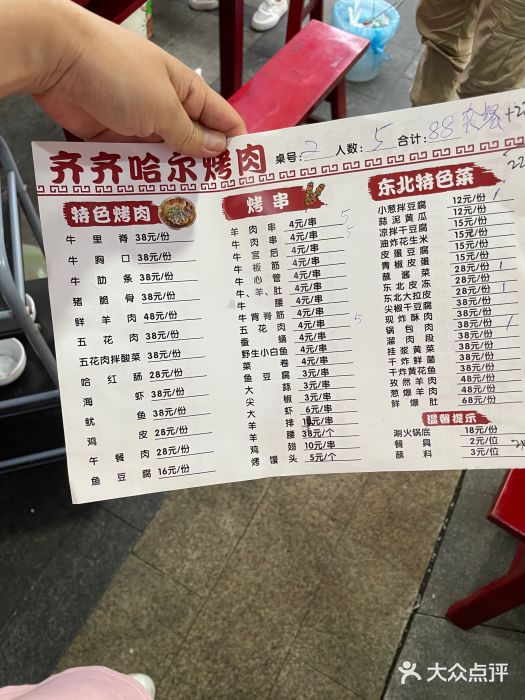 齐齐哈尔烤肉
桌号: 2 人数: 5 合计: 88 套餐 +22
特色烤肉
牛里脊 38元/份
牛胸口 38元/份
牛肋条 38元/份
猪脆骨 38元/份
鲜羊肉 48元/份
五花肉 38元/份
五花肉拌酸菜 38元/份
哈红肠 28元/份
海虾 38元/份
鱿鱼 38元/份
鸡皮 28元/份
午餐肉 28元/份
鱼豆腐 16元/份
烤串
羊肉串 4元/串 5
牛肉串 4元/串 5
牛宫后 4元/串
牛板筋 4元/串
牛心管 4元/串
牛、羊肚 4元/串
牛腰 4元/串
牛脊筋 4元/串
五花肉 4元/串 5
蚕蛹 4元/串
野生小白鱼 4元/串
菜卷 4元/串
鱼豆腐 4元/串
大蒜 3元/串
尖椒 3元/串
大虾 6元/串
羊排
羊腰 38元/个
鸡翅 10元/串
烤馒头 5元/个
东北特色菜
小葱拌豆腐 12元/份 1
蒜泥黄瓜 12元/份
凉拌干豆腐 15元/份
油炸花生米 15元/份
皮蛋豆腐 15元/份
青椒皮蛋 15元/份
蘸酱菜 28元/份 1
东北皮冻 28元/份
东北大拉皮 28元/份 1
尖椒干豆腐 28元/份
现炸酥肉 38元/份
锅包肉 38元/份 1
溜肉段 38元/份
挂浆黄菜 38元/份
干炸鲜菌 38元/份
干炸黄花鱼 38元/份
孜然羊肉 48元/份
葱爆羊肉 48元/份
鲜爆肚 68元/份
温馨提示
涮火锅底 18元/份
餐具 2元/位
蘸料 3元/位
大众点评